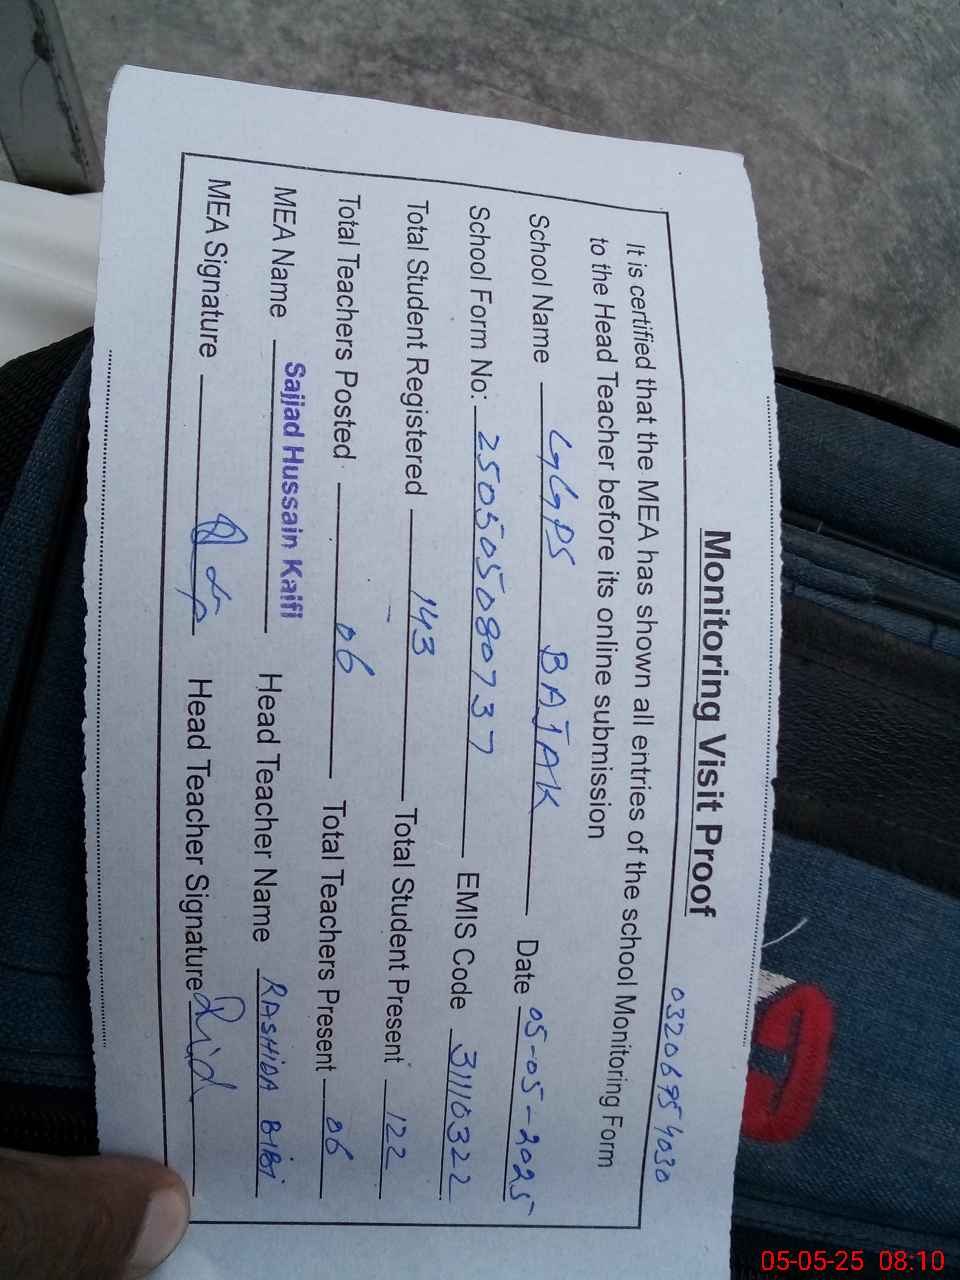 Monitoring Visit Proof
03206954030
It is certified that the MEA has shown all entries of the school Monitoring Form
to the Head Teacher before its online submission
School Name GGPS BAJAK Date 05-05-2025
School Form No: 250505080737 EMIS Code 31110322
Total Student Registered 143 Total Student Present 122
Total Teachers Posted 06 Total Teachers Present 06
MEA Name Sajjad Hussain Kaifi Head Teacher Name RASHIDA BIBI
MEA Signature Head Teacher Signature
05-05-25 08:10